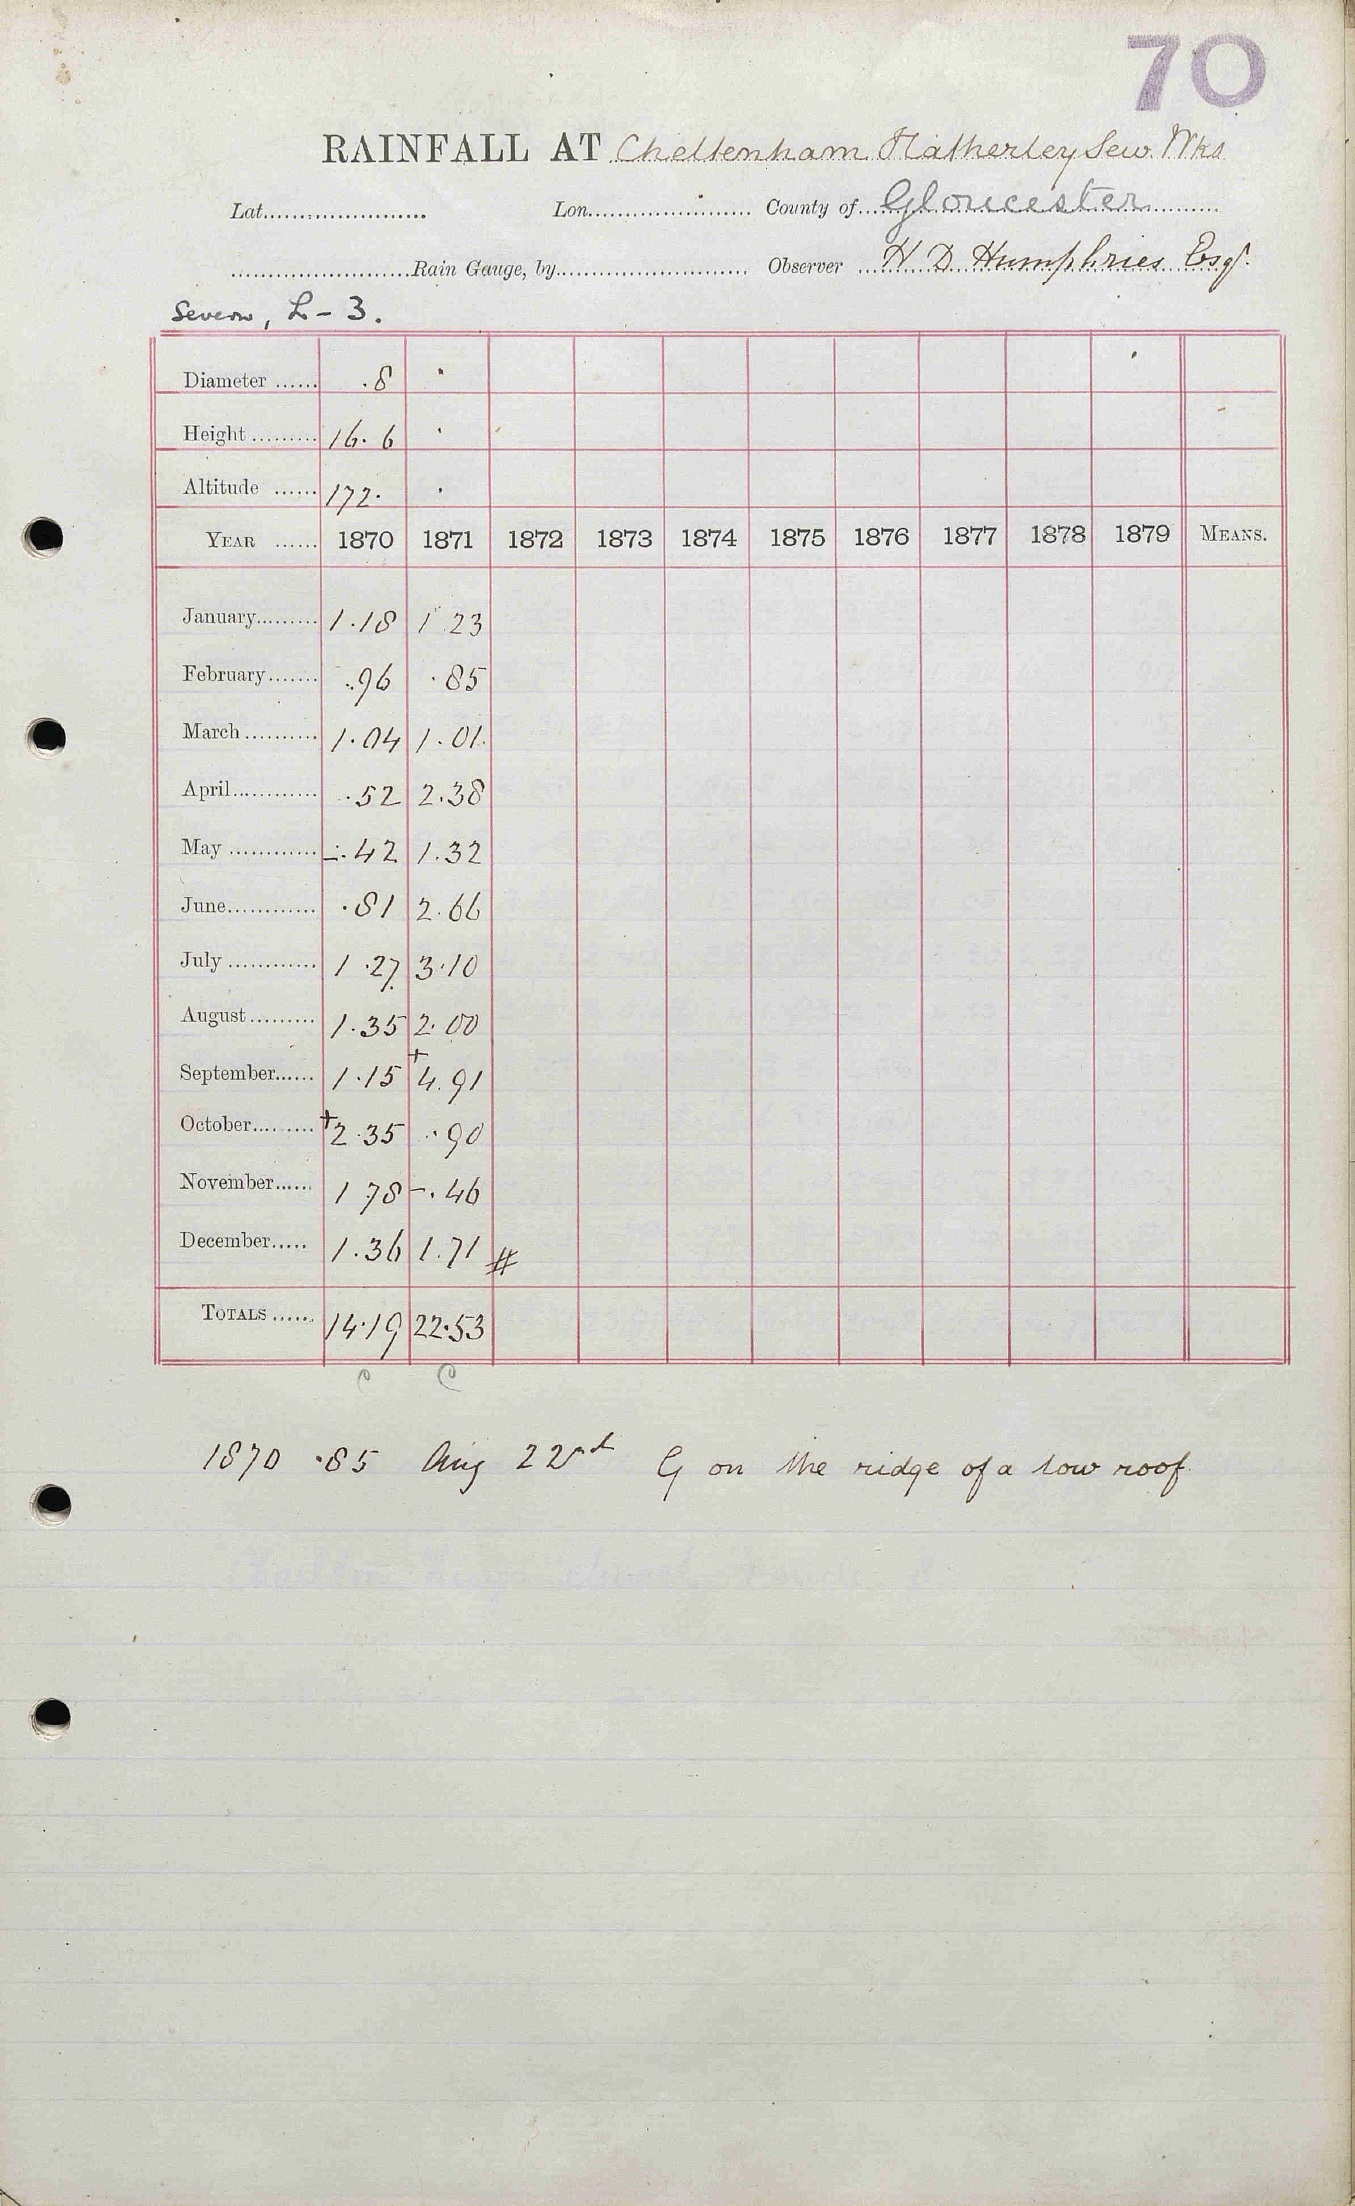 70
RAINFALL AT Cheltenham Hatherley Sew. Wks
Lat. Lon. County of Gloucester
Rain Gauge, by Observer H D Humphries Esqr.
Severn, L-3.
Diameter ...... .8 .
Height ......... 16.6 .
Altitude ...... 172. .
YEAR ...... 1870 1871 1872 1873 1874 1875 1876 1877 1878 1879 MEANS.
January......... 1.18 1 23
February....... .96 .85
March .......... 1.04 1.01
April............ .52 2.38
May ............ -.42 1.32
June............ .81 2.66
July ............ 1.27 3.10
August......... 1.35 2.00
September...... 1.15 +4.91
October......... +2.35 .90
November...... 1 78 -.46
December..... 1.36 1.71 #
TOTALS ...... 14.19 22.53
C C
1870 .85 Aug 22nd G on the ridge of a low roof